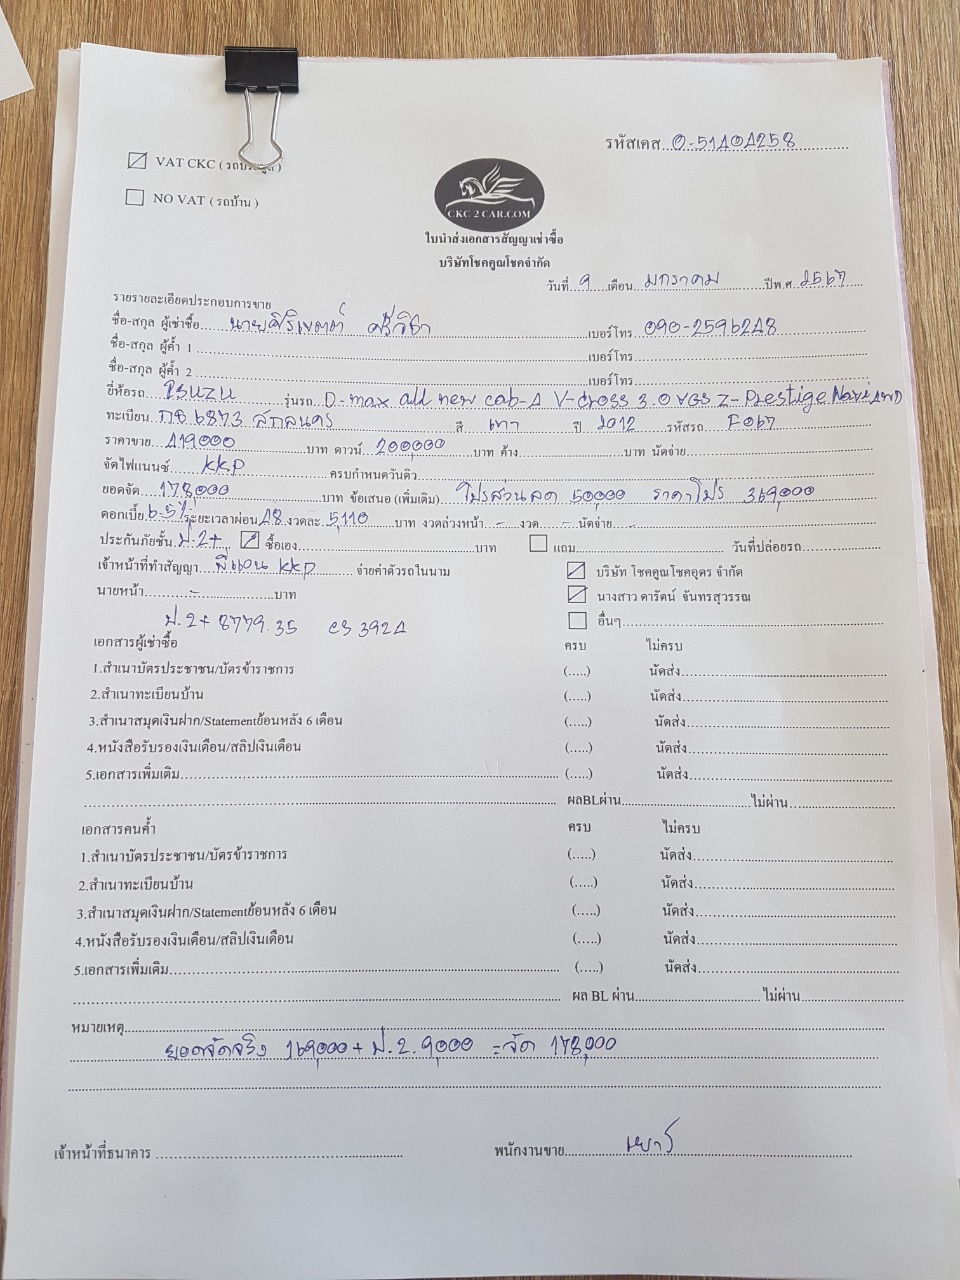 รหัสเคส 0-51404258
VAT CKC ( รถประมูล )
NO VAT ( รถบ้าน )
CKC 2 CAR.COM
ใบนำส่งเอกสารสัญญาเช่าซื้อ
บริษัทโชคคูณโชคจำกัด
วันที่ 9 เดือน มกราคม ปีพ.ศ. 2567
รายรายละเอียดประกอบการขาย
ชื่อ-สกุล ผู้เช่าซื้อ เบอร์โทร 090-2596248
ชื่อ-สกุล ผู้ค้ำ 1 เบอร์โทร
ชื่อ-สกุล ผู้ค้ำ 2 เบอร์โทร
ยี่ห้อรถ Isuzu รุ่นรถ D-max all new cab-4 V-cross 3.0 VGS Z-Prestige Navi 4WD
ทะเบียน กธ 6873 สกลนคร สี เทา ปี 2012 รหัสรถ F067
ราคาขาย 419000 บาท ดาวน์ 200,000 บาท ค้าง บาท นัดจ่าย
จัดไฟแนนซ์ KKP ครบกำหนดวันคิว
ยอดจัด 178,000 บาท ข้อเสนอ (เพิ่มเติม) โปรส่วนลด 50000 ราคาโปร 369,000
ดอกเบี้ย 6.5% ระยะเวลาผ่อน 48 งวดละ 5,110 บาท งวดล่วงหน้า - งวด - นัดจ่าย -
ประกันภัยชั้น ป.2+ ซื้อเอง บาท แถม วันที่ปล่อยรถ
เจ้าหน้าที่ทำสัญญา พี่แอน KKP จ่ายค่าตัวรถในนาม บริษัท โชคคูณโชคอุดร จำกัด
นายหน้า - บาท นางสาว ดารัตน์ จันทรสุวรรณ
ป.2+ 8779.35 cs 3924 อื่นๆ
เอกสารผู้เช่าซื้อ ครบ ไม่ครบ
1.สำเนาบัตรประชาชน/บัตรข้าราชการ (.....) นัดส่ง
2.สำเนาทะเบียนบ้าน (.....) นัดส่ง
3.สำเนาสมุดเงินฝาก/Statementย้อนหลัง 6 เดือน (.....) นัดส่ง
4.หนังสือรับรองเงินเดือน/สลิปเงินเดือน (.....) นัดส่ง
5.เอกสารเพิ่มเติม (.....) นัดส่ง
ผลBLผ่าน ไม่ผ่าน
เอกสารคนค้ำ ครบ ไม่ครบ
1.สำเนาบัตรประชาชน/บัตรข้าราชการ (.....) นัดส่ง
2.สำเนาทะเบียนบ้าน (.....) นัดส่ง
3.สำเนาสมุดเงินฝาก/Statementย้อนหลัง 6 เดือน (.....) นัดส่ง
4.หนังสือรับรองเงินเดือน/สลิปเงินเดือน (.....) นัดส่ง
5.เอกสารเพิ่มเติม (.....) นัดส่ง
ผล BL ผ่าน ไม่ผ่าน
หมายเหตุ
ยอดจัดจริง 169,000 + ป.2. 9,000 = จัด 178,000
เจ้าหน้าที่ธนาคาร พนักงานขาย